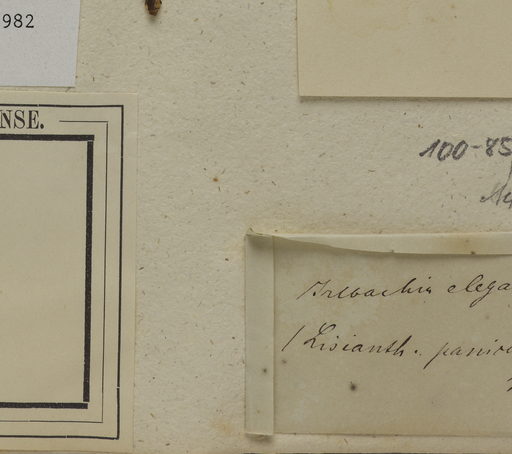 982
NSE.
100-85
Irlbachia elega
/ Lisianth. panic